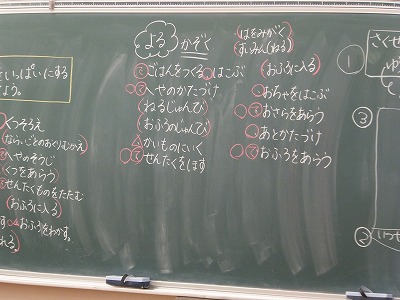 いっぱいにする
よう。
くつそろえ
(ならいごとのおくりむかえ)
へやのそうじ
くつをあらう
せんたくものをたたむ
(おふろに入る)
おふろをわかす。
よる かぞく
ごはんをつくる。はこぶ
へやのかたづけ
(ねるじゅんび)
(おふろのじゅんび)
かいものにいく
せんたくをほす
(はをみがく)
(すいみん(ねる))
(おふろに入る)
おちゃをはこぶ
おさらをあらう
あとかたづけ
おふろをあらう
さくせ
①
③
②